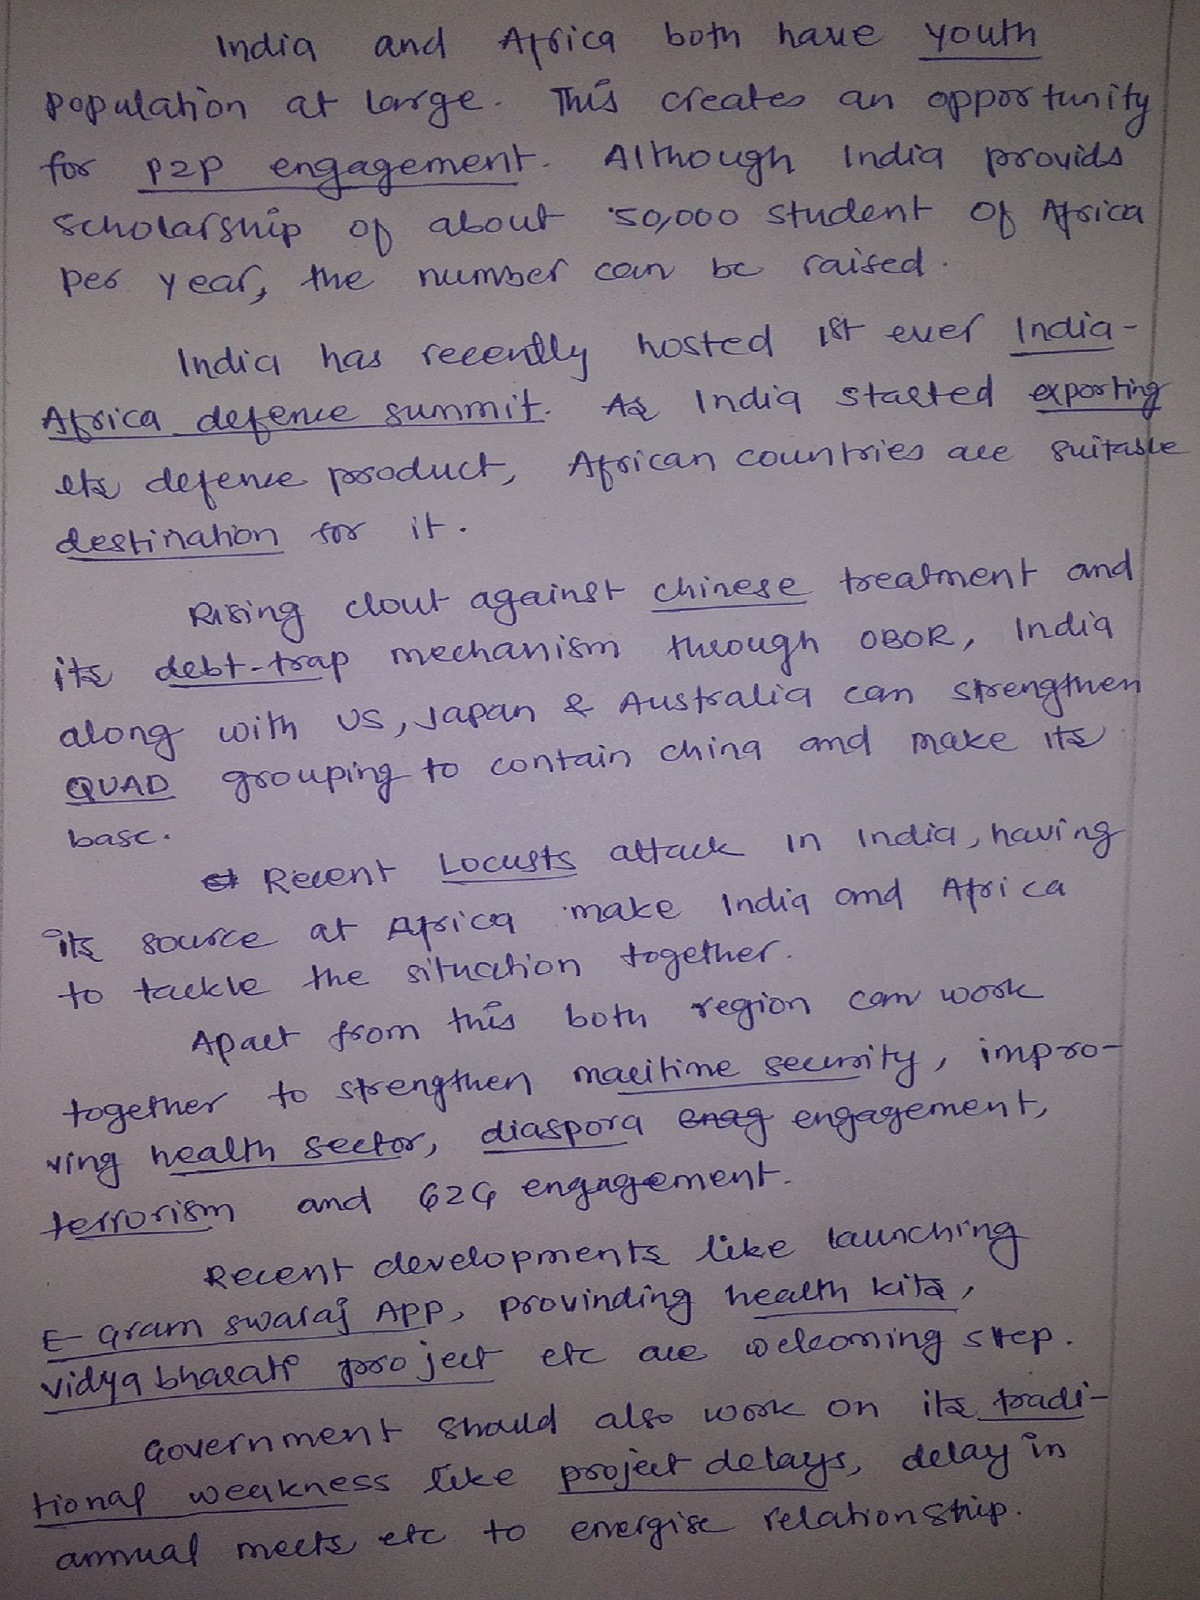 India and Africa both have youth
population at large. This creates an opportunity
for P2P engagement. Although India provids
scholarship of about 50,000 student of Africa
per year, the number can be raised.
India has recently hosted 1st ever India-
Africa defence summit. As India started exporting
its defence product, African countries are suitable
destination for it.
Rising clout against chinese treatment and
its debt-trap mechanism through OBOR, India
along with US, Japan & Australia can strengthen
QUAD grouping to contain china and make its
base.
Recent Locusts attack in India, having
its source at Africa make India and Africa
to tackle the situation together.
Apart from this both region can work
together to strengthen maritime security, impro-
ving health sector, diaspora enag engagement,
terrorism and G2G engagement.
Recent developments like launching
E-Gram swaraj App, provinding health kits,
vidya bharati project etc are welcoming step.
Government should also work on its tradi-
tional weakness like project delays, delay in
annual meets etc to energise relationship.